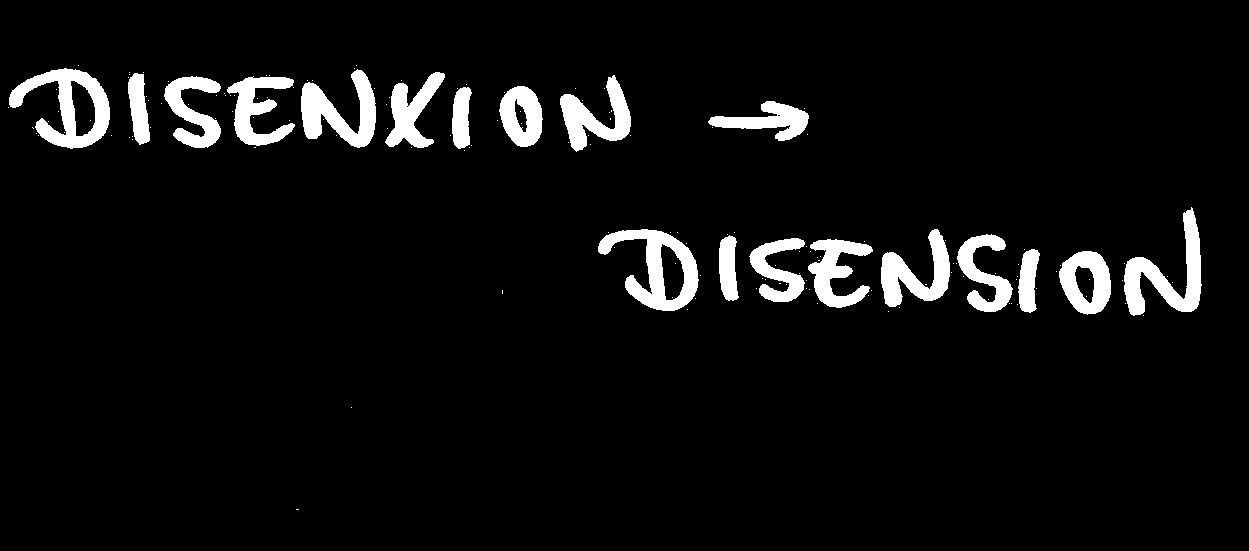 DISENXION →
DISENSION